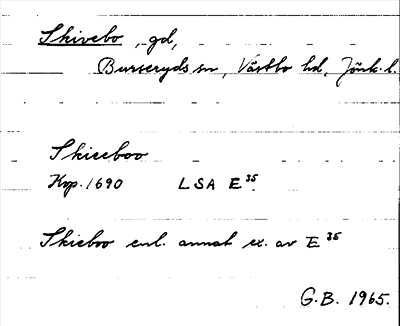 Skivebo, gd,
Burseryds sn, Västbo hd, Jönk. l.
Skiceboo
Krp. 1690 LSA E³⁵.
Skieboo enl. annat ex. av E³⁵
G.B. 1965.